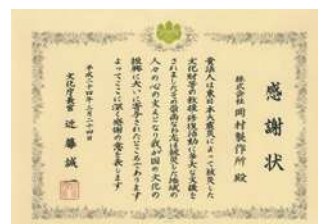 感謝状
株式会社 岡村製作所 殿
貴法人は東日本大震災によって被災した
文化財等の救援・修復活動に多大な支援を
されましたその崇高なお志は被災した地域の
人々の心の支えとなり我が国の文化の
振興に大いに寄与されたところであります
よってここに深く感謝の意を表します
平成二十四年三月二十四日
文化庁長官 近藤誠一